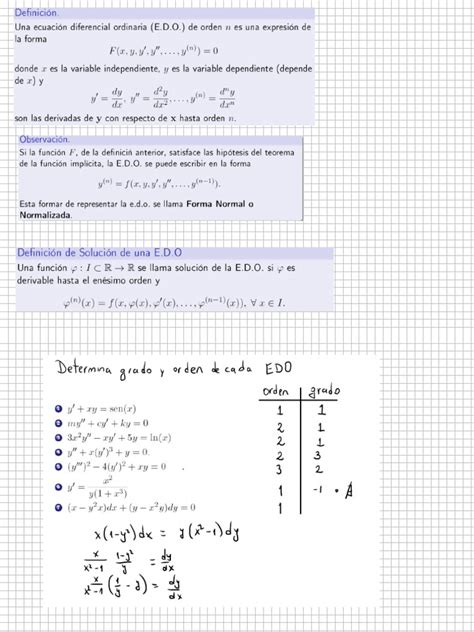 Definición.
Una ecuación diferencial ordinaria (E.D.O.) de orden n es una expresión de
la forma
F(x, y, y', y'', . . . , y⁽ⁿ⁾) = 0
donde x es la variable independiente, y es la variable dependiente (depende
de x) y
y' = dy/dx, y'' = d²y/dx², . . . , y⁽ⁿ⁾ = dⁿy/dxⁿ
son las derivadas de y con respecto de x hasta orden n.
Observación.
Si la función F, de la definició anterior, satisface las hipótesis del teorema
de la función implicita, la E.D.O. se puede escribir en la forma
y⁽ⁿ⁾ = f(x, y, y', y'', . . . , y⁽ⁿ⁻¹⁾).
Esta forma de representar la e.d.o. se llama Forma Normal o
Normalizada.
Definición de Solución de una E.D.O
Una función φ : I ⊂ ℝ → ℝ se llama solución de la E.D.O. si φ es
derivable hasta el enésimo orden y
φ⁽ⁿ⁾(x) = f(x, φ(x), φ'(x), . . . , φ⁽ⁿ⁻¹⁾(x)), ∀ x ∈ I.
Determina grado y orden de cada EDO
orden grado
1 y' + xy = sen(x) 1 1
2 my'' + cy' + ky = 0 2 1
3 3x²y'' − xy' + 5y = ln(x) 2 1
4 y'' + x(y')³ + y = 0. 2 3
5 (y''')² − 4(y')² + xy = 0 . 3 2
6 y' = x²/y(1 + x³) 1 -1
7 (x − y²x)dx + (y − x²y)dy = 0 1
x(1-y²)dx = y(x²-1)dy
x/x²-1 1-y²/y = dy/dx
x/x²-1 (1/y - y) = dy/dx